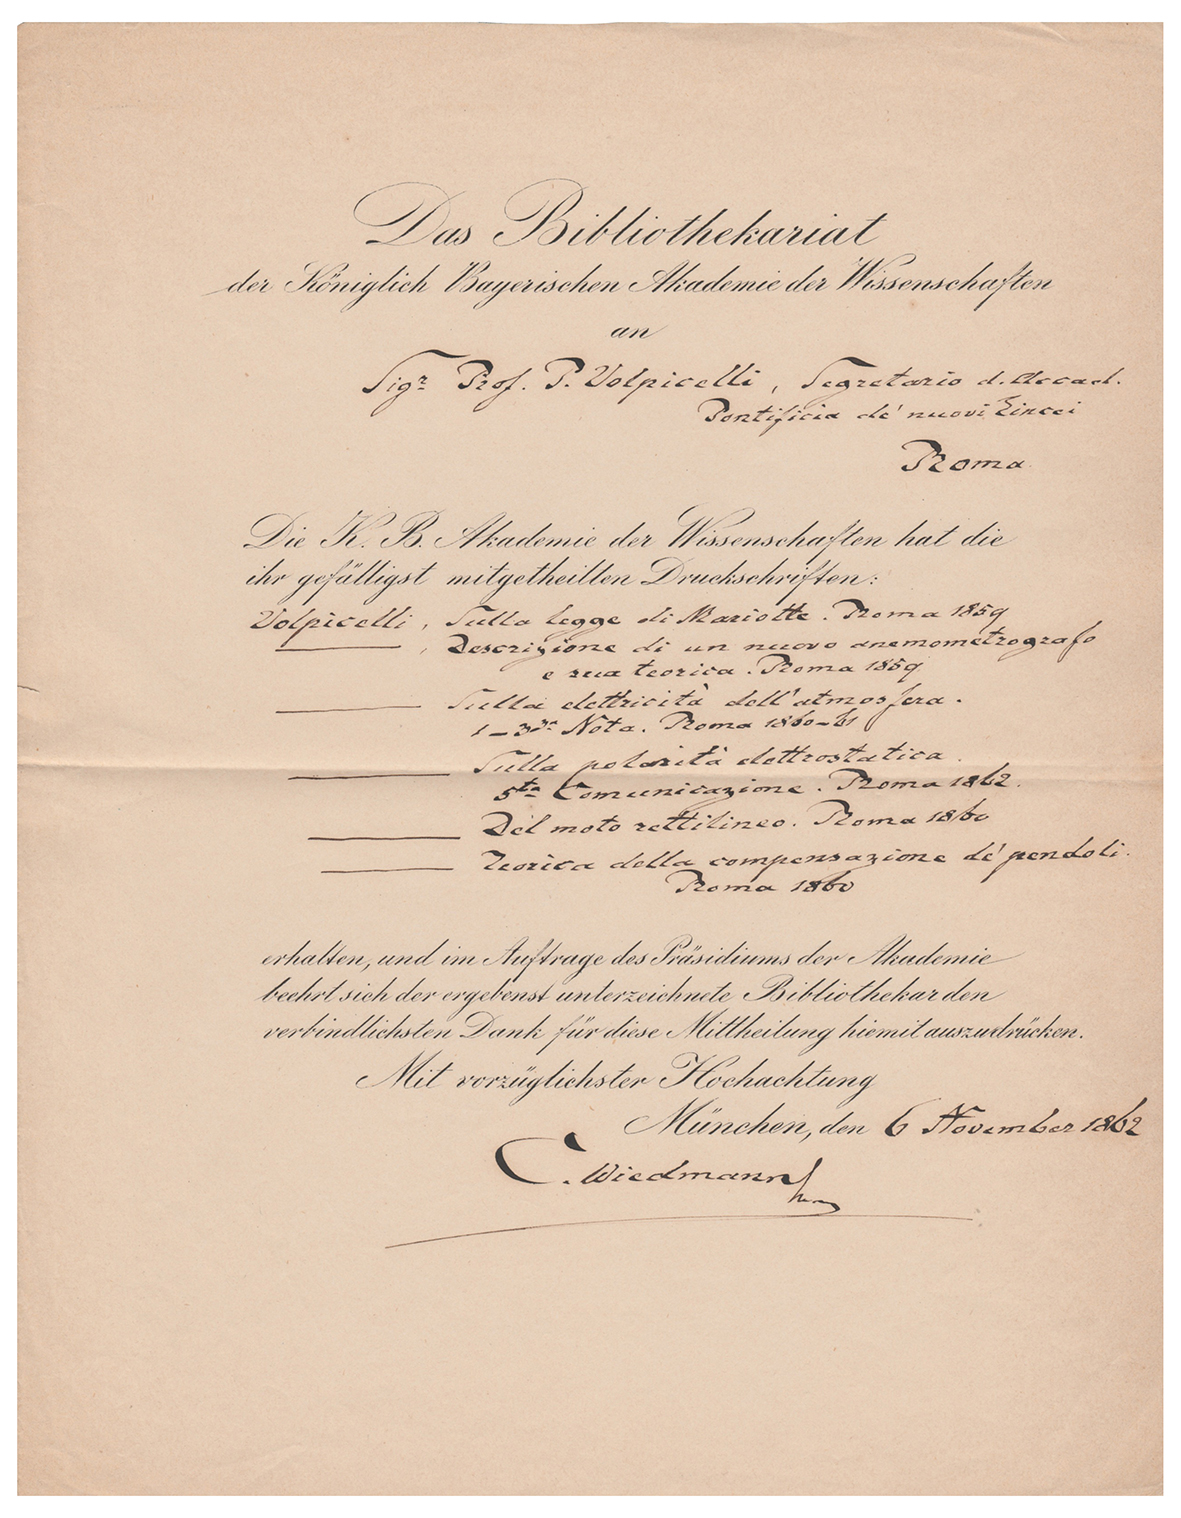 Das Bibliothekariat
der Königlich Bayerischen Akademie der Wissenschaften
an
Sigr Prof. P. Volpicelli, Segretario d. Accad.
Pontificia de' nuovi Lincei
Roma
Die K. B. Akademie der Wissenschaften hat die
ihr gefälligst mitgetheilten Druckschriften:
Volpicelli, Sulla legge di Mariotte. Roma 1859
——— , Descrizione di un nuovo anemometrografo
e sua teorica. Roma 1859
——— Sulla elettricità dell'atmosfera.
1–3za Nota. Roma 1860–61
——— Sulla polarità elettrostatica.
5ta Comunicazione. Roma 1862.
——— Del moto rettilineo. Roma 1860
——— Teorica della compensazione de' pendoli.
Roma 1860
erhalten, und im Auftrage des Präsidiums der Akademie
beehrt sich der ergebenst unterzeichnete Bibliothekar den
verbindlichsten Dank für diese Mittheilung hiemit auszudrücken.
Mit vorzüglichster Hochachtung
München, den 6 November 1862
C. Wiedmann